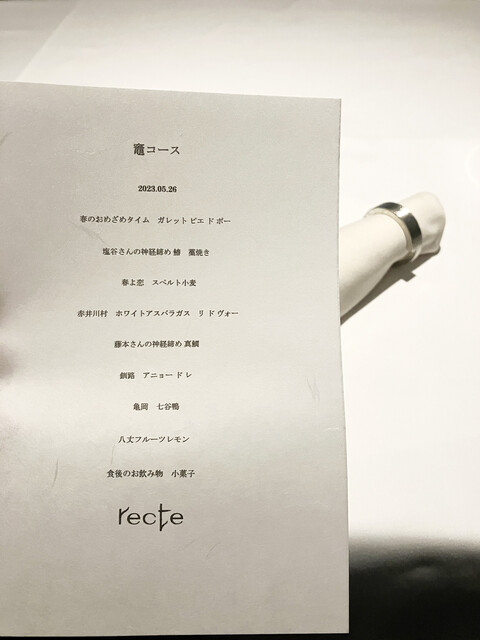 竈コース
2023.05.26
春のおめざめタイム　ガレット ピエ ド ポー
塩谷さんの神経締め 鰆　藁焼き
春よ恋　スペルト小麦
赤井川村　ホワイトアスパラガス　リ ド ヴォー
藤本さんの神経締め 真鯛
釧路　アニョー ド レ
亀岡　七谷鴨
八丈フルーツレモン
食後のお飲み物　小菓子
recte